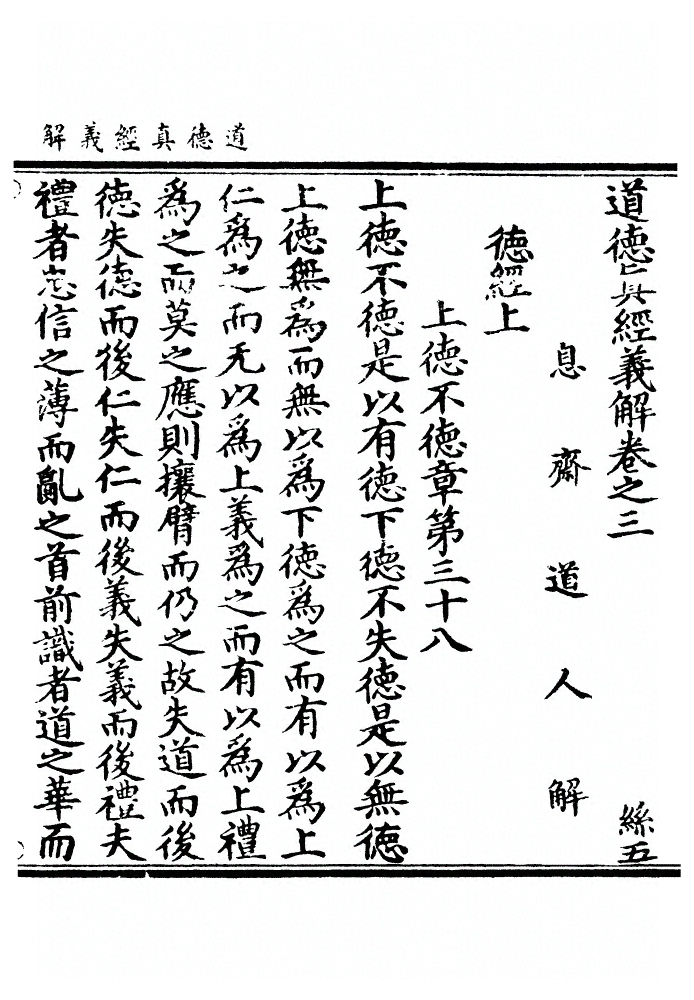 道德真經義解
道德真經義解卷之三 絲五
息齋道人解
德經上
上德不德章第三十八
上德不德是以有德下德不失德是以無德
上德無為而無以為下德為之而有以為上
仁為之而无以為上義為之而有以為上禮
為之而莫之應則攘臂而仍之故失道而後
德失德而後仁失仁而後義失義而後禮夫
禮者忠信之薄而亂之首前識者道之華而